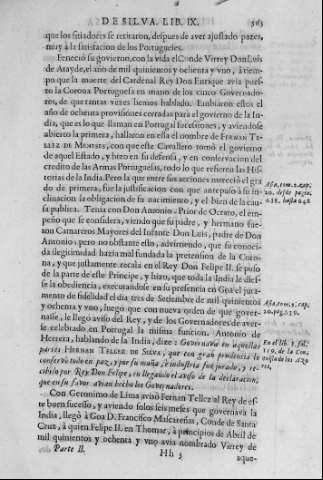 DE SILVA. LIB. IX. 563
que los sitiadores se retiraron, despues de aver ajustado pazes,
muy à la satisfacion de los Portugueses.
Feneciò su govierno, con la vida el Conde Virrey Don Luis
de Atayde, el año de mil quinientos y ochenta y vno, à tiempo
que la muerte del Cardenal Rey Don Enrique avia puesto
la Corona Portuguesa en mano de los cinco Governadores,
de que tantas vezes hemos hablado. Embiaron estos el
año de ochenta provisiones cerradas para el govierno de la India,
que es lo que llaman en Portugal sucessiones, y aviendose
abierto la primera, hallaron en ella el nombre de FERNAN TELLEZ
DE MENESES, con que este Cavallero tomò el govierno
de aquel Estado, y hizo en su defensa, y en conservacion del
credito de las Armas Portuguesas, todo lo que refieren las Historias
de la India. Pero la que entre sus acciones mereciò el grado
de primera, fue la justificacion con que antepuso à su inclinacion
la obligacion de su nacimiento, y el bien de la causa
publica. Tenia con Don Antonio, Prior de Ocrato, el empeño
que se considera, viendo que su padre, y hermano fueron
Camareros Mayores del Infante Don Luis, padre de Don
Antonio; pero no obstante esto, advirtiendo, que su conocida
ilegitimidad hazia mal fundada la pretension de la Corona,
y que justamente recaìa en el Rey Don Felipe II. se puso
de la parte de este Principe, y hizo, que toda la India le diesse
la obediencia, executandose en su presencia en Goa el juramento
de fidelidad el dia tres de Setiembre de mil quinientos
y ochenta y vno, luego que con nueva orden de que governasse,
le llegò aviso del Rey, y de los Governadores de averse
celebrado en Portugal la misma funcion. Antonio de
Herrera, hablando de la India, dize: Governava en aquellas
partes HERNAN TELLEZ DE SILVA, que con gran prudencia las
conservò todo en paz, y por su maña, è industria fue jurado, y recibido
por Rey Don Felipe, en llegando el aviso de la declaracion,
que en su favor avian hecho los Governadores.
Con Geronimo de Lima avisò Fernan Tellez al Rey de este
buen sucesso, y aviendo solos seis meses que governava la
India, llegò à Goa D. Francisco Mascareñas, Conde de Santa
Cruz, à quien Felipe II. en Thomar, à principios de Abril de
mil quinientos y ochenta y vno avia nombrado Virrey de
Parte II. Hh 3 aque-